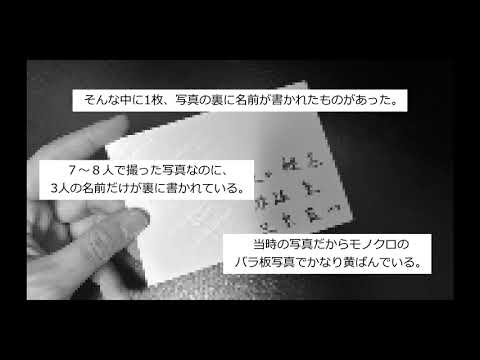 そんな中に1枚、写真の裏に名前が書かれたものがあった。
７～８人で撮った写真なのに、
3人の名前だけが裏に書かれている。
当時の写真だからモノクロの
バラ板写真でかなり黄ばんでいる。